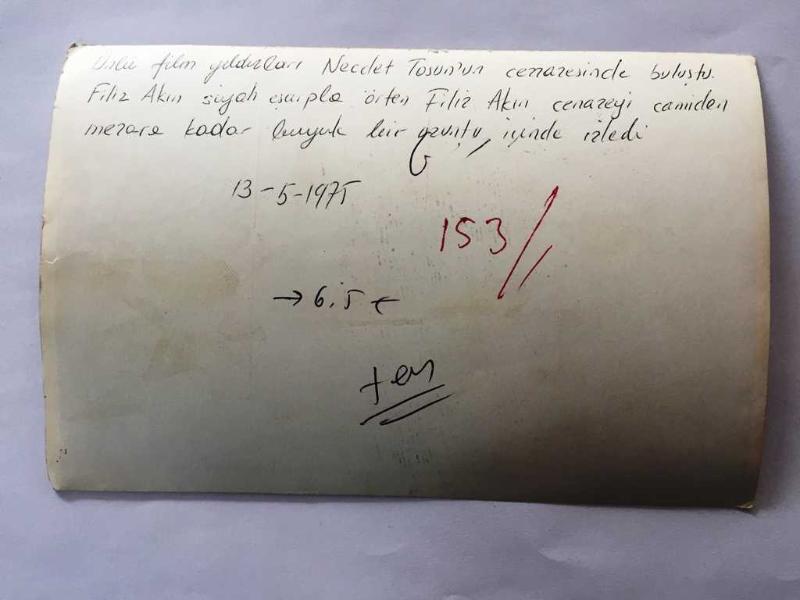 Ünlü film yıldızları Necdet Tosun'un cenazesinde buluştu.
Filiz Akın siyah eşarpla örten Filiz Akın cenazeyi camiden
mezara kadar büyük bir üzüntü içinde izledi
13-5-1975
153
→ 6.5 ←